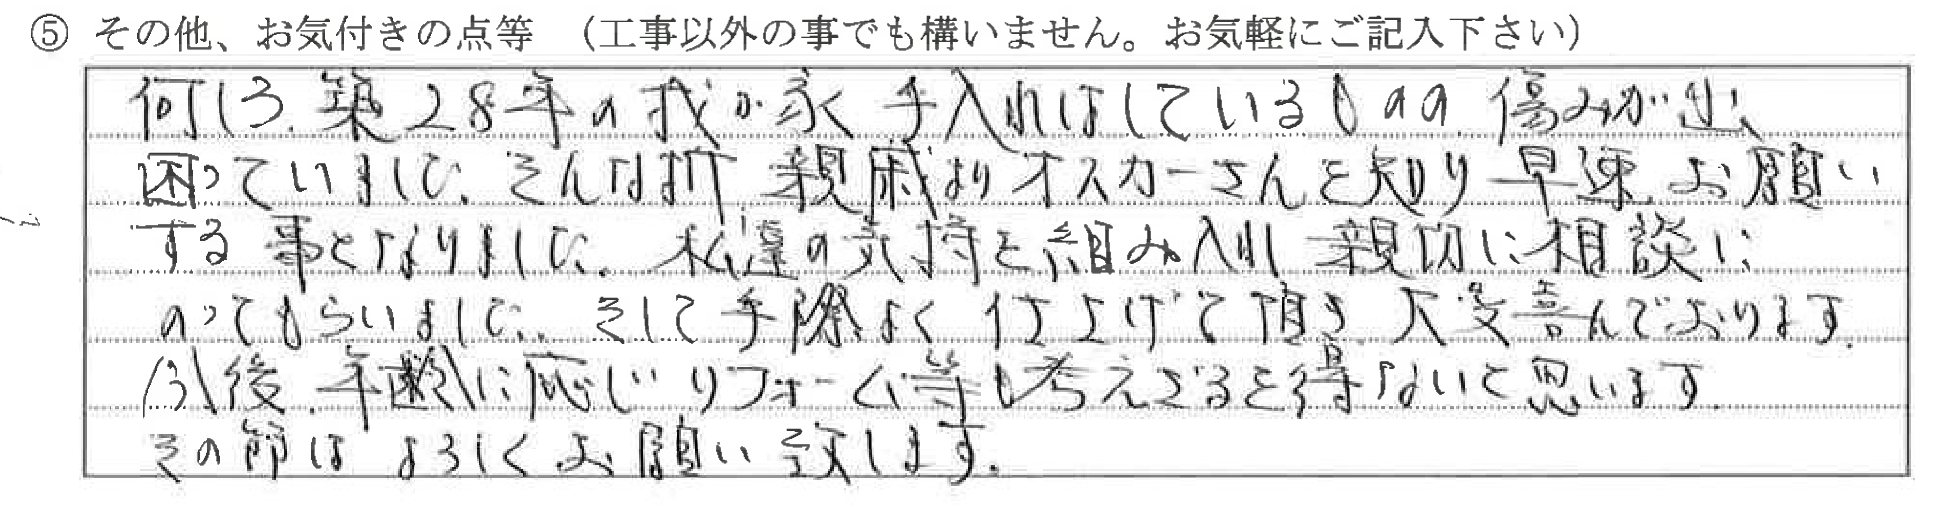 ⑤ その他、お気付きの点等 （工事以外の事でも構いません。お気軽にご記入下さい）
何しろ、築28年の我が家 手入れはしているものの、傷みが出、
困っていました、そんな折 親戚よりオスカーさんを知り 早速、お願い
する事となりました、私達の気持を組み入れ 親切に相談に
のってもらいました、そして手際よく仕上げて頂き、大変喜んでおります。
今後、年齢に応じリフォーム等も考えざるを得ないと思います。
その節は よろしくお願い致します。